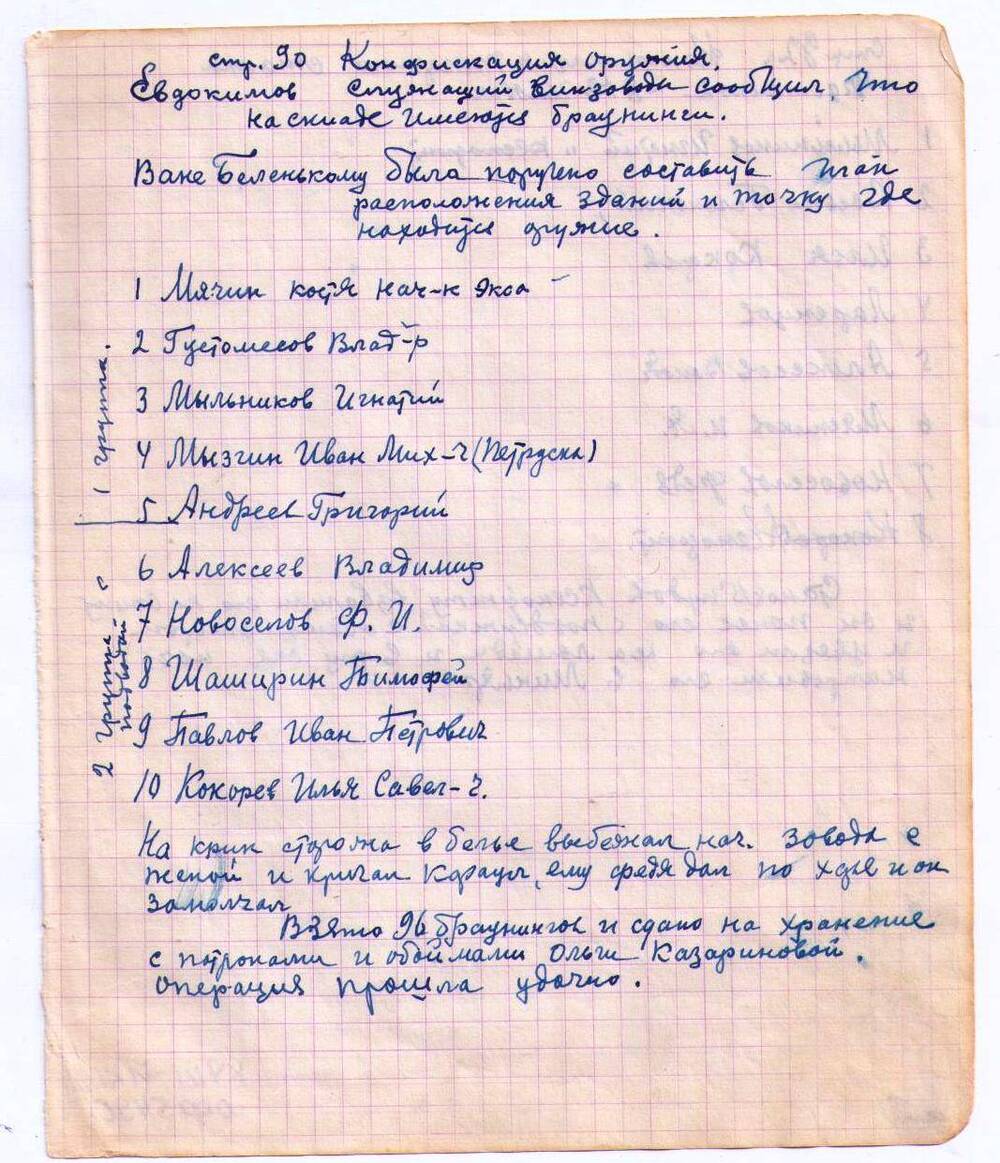 стр. 90 Конфискация оружия.
Евдокимов служащий винзавода сообщил, что
на складе имеются браунинги.
Ване Беленькому была поручено составить план
расположения зданий и точку где
находится оружие.
1 группа.
1 Мячин костя нач-к экса
2 Густомесов Влад-р
3 Мыльников Игнатий
4 Мызгин Иван Мих-ч (Петруска)
5 Андреев Григорий
2 группа с подводой
6 Алексеев Владимир
7 Новоселов Ф. И.
8 Шаширин Тимофей
9 Павлов Иван Петрович
10 Кокорев Илья Савел-ч.
На крик сторожа в белье выбежал нач. завода с
женой и кричал караул, ему федя дал по и он
замолчал
Взято 96 браунингов и сдано на хранение
с патронами и обоймами Ольги Казариновой.
Операция прошла удачно.